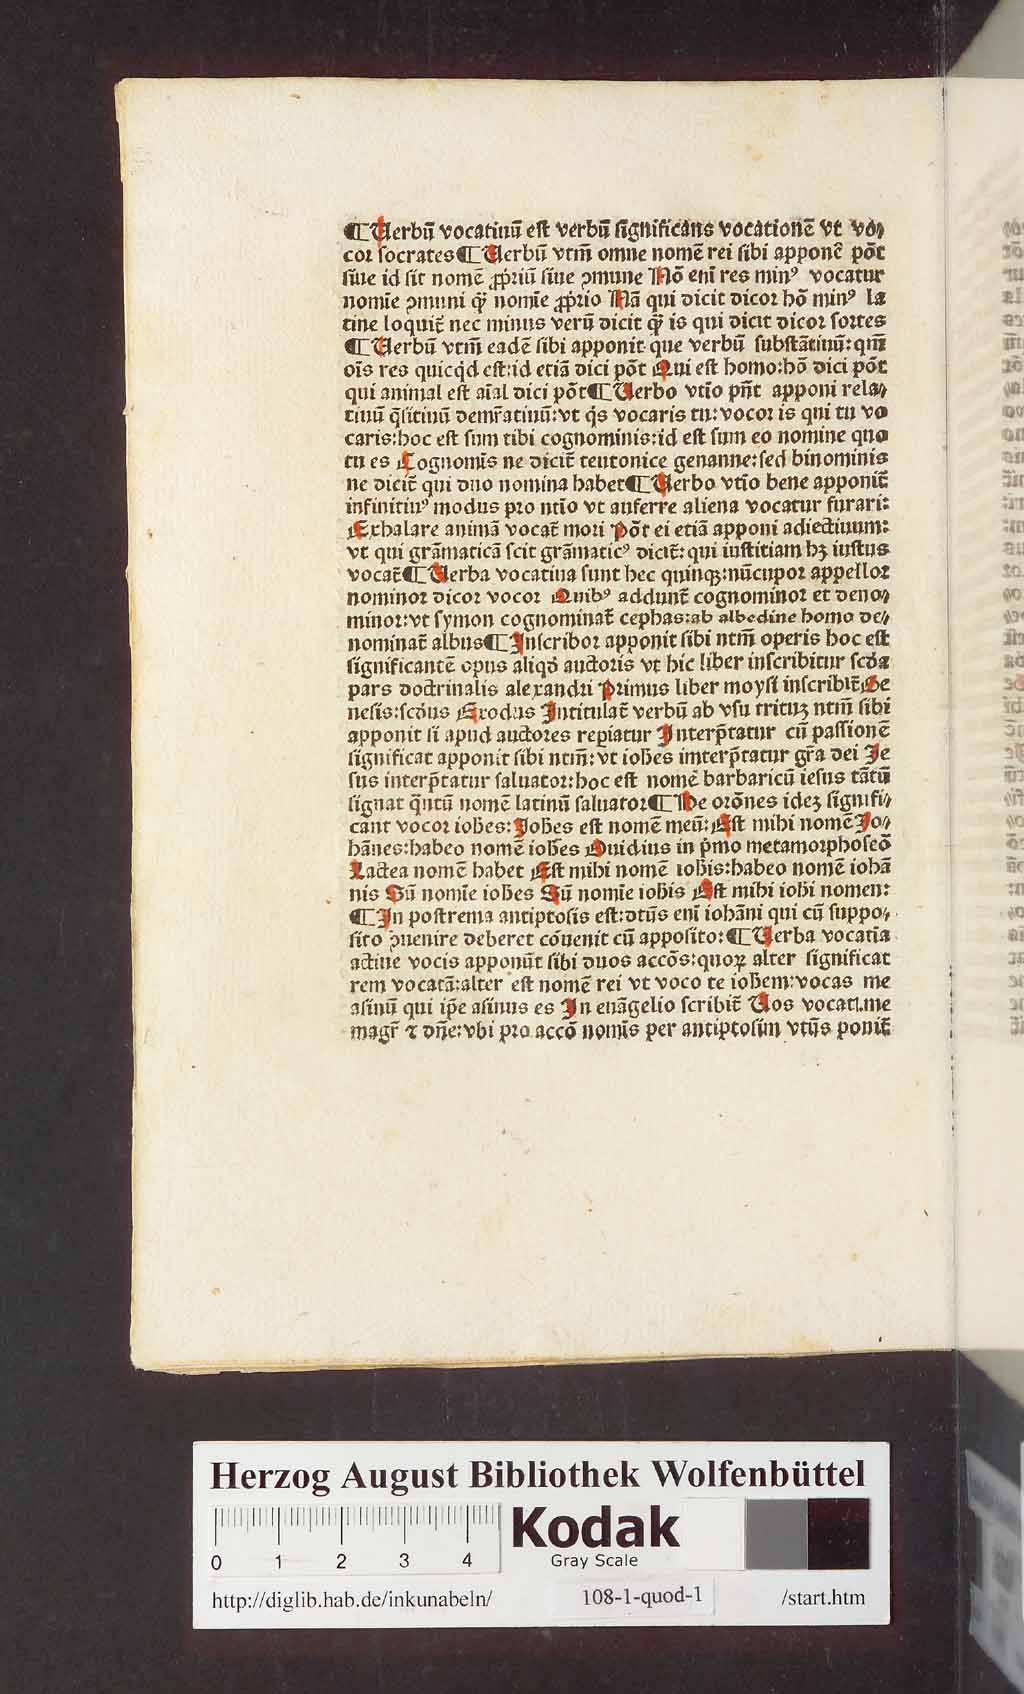 ¶ Uerbū vocatiuū est verbū significans vocationē vt vo⸗
cor socrates ¶ Uerbū vtīn omne nomē rei sibi apponē pōt
siue id sit nomē ꝓpriū siue ꝯmune Nō enī res minꝰ vocatur
nomīe ꝯmuni qȝ nomīe ꝓprio Nā qui dicit dicor hō minꝰ la
tine loquit̄ nec minus verū dicit qȝ is qui dicit dicor sortes
¶ Uerbū vtm̄ eadē sibi apponit que verbū substātiuū: qm̄
oīs res quicqd est: id etiā dici pōt Qui est homo: hō dici pōt
qui animal est aīal dici pōt ¶ Uerbo vtīo pn̄t apponi rela⸗
tiuū q̄sitiuū demr̄atiuū: vt q̄s vocaris tu: vocor is qui tu vo
caris: hoc est sum tibi cognominis: id est sum eo nomine quo
tu es Cognomīs ne dicit̄ teutonice genanne: sed binominis
ne dicit̄ qui duo nomina habet ¶ Uerbo vtīo bene apponit̄
infinitiuꝰ modus pro ntīo vt auferre aliena vocatur furari:
Exhalare animā vocat̄ mori Pōt ei etiā apponi adiectiuum:
vt qui grāmaticā scit grāmaticꝰ dicit̄: qui iustitiam hȝ iustus
vocat̄ ¶ Uerba vocatiua sunt hec quinqȝ: nūcupor appellor
nominor dicor vocor Quibꝰ addunt̄ cognominor et deno⸗
minor: vt symon cognominat̄ cephas: ab albedine homo de⸗
nominat̄ albus ¶ Inscribor apponit sibi ntm̄ operis hoc est
significantē opus aliqd̄ auctoris vt hic liber inscribitur scd̄a
pars doctrinalis alexandri Primus liber moysi inscribit̄ Ge
nesis: scd̄us Exodus Intitulat̄ verbū ab vsu tritūȝ ntm̄ sibi
apponit si apud auctores repiatur Interp̄tatur cū passionē
significat apponit sibi ntm̄: vt ioh̄es imterp̄tatur gr̄a dei Je
sus interp̄tatur saluator: hoc est nomē barbaricū iesus tātū
signat q̄ntū nomē latinū saluator ¶ He orōnes ideȝ signifi⸗
cant vocor ioh̄es: Joh̄es est nomē meū: Est mihi nomē Jo⸗
hānes: habeo nomē ioh̄es Ouidius in p̄mo metamorphoseō
Lactea nomē habet Est mihi nomē ioh̄is: habeo nomē iohā
nis Sū nomīe ioh̄es Sū nomīe ioh̄is Est mihi ioh̄i nomen:
¶ In postrema antiptosis est: dtūs enī iohāni qui cū suppo⸗
sito ꝯuenire deberet cōuenit cū apposito: ¶ Uerba vocatīa
actiue vocis apponūt sibi duos accōs: quoꝝ alter significat
rem vocatā: alter est nomē rei vt voco te ioh̄em: vocas me
asinū qui ip̄e asinus es In euāgelio scribit̄ Uos vocati.me
magr̄ ⁊ dn̄e: vbi pro accō nomīs per antiptosim vtūs ponit̄
Herzog August Bibliothek Wolfenbüttel
0 1 2 3 4
Kodak
Gray Scale
http://diglib.hab.de/inkunabeln/ 108-1-quod-1 /start.htm